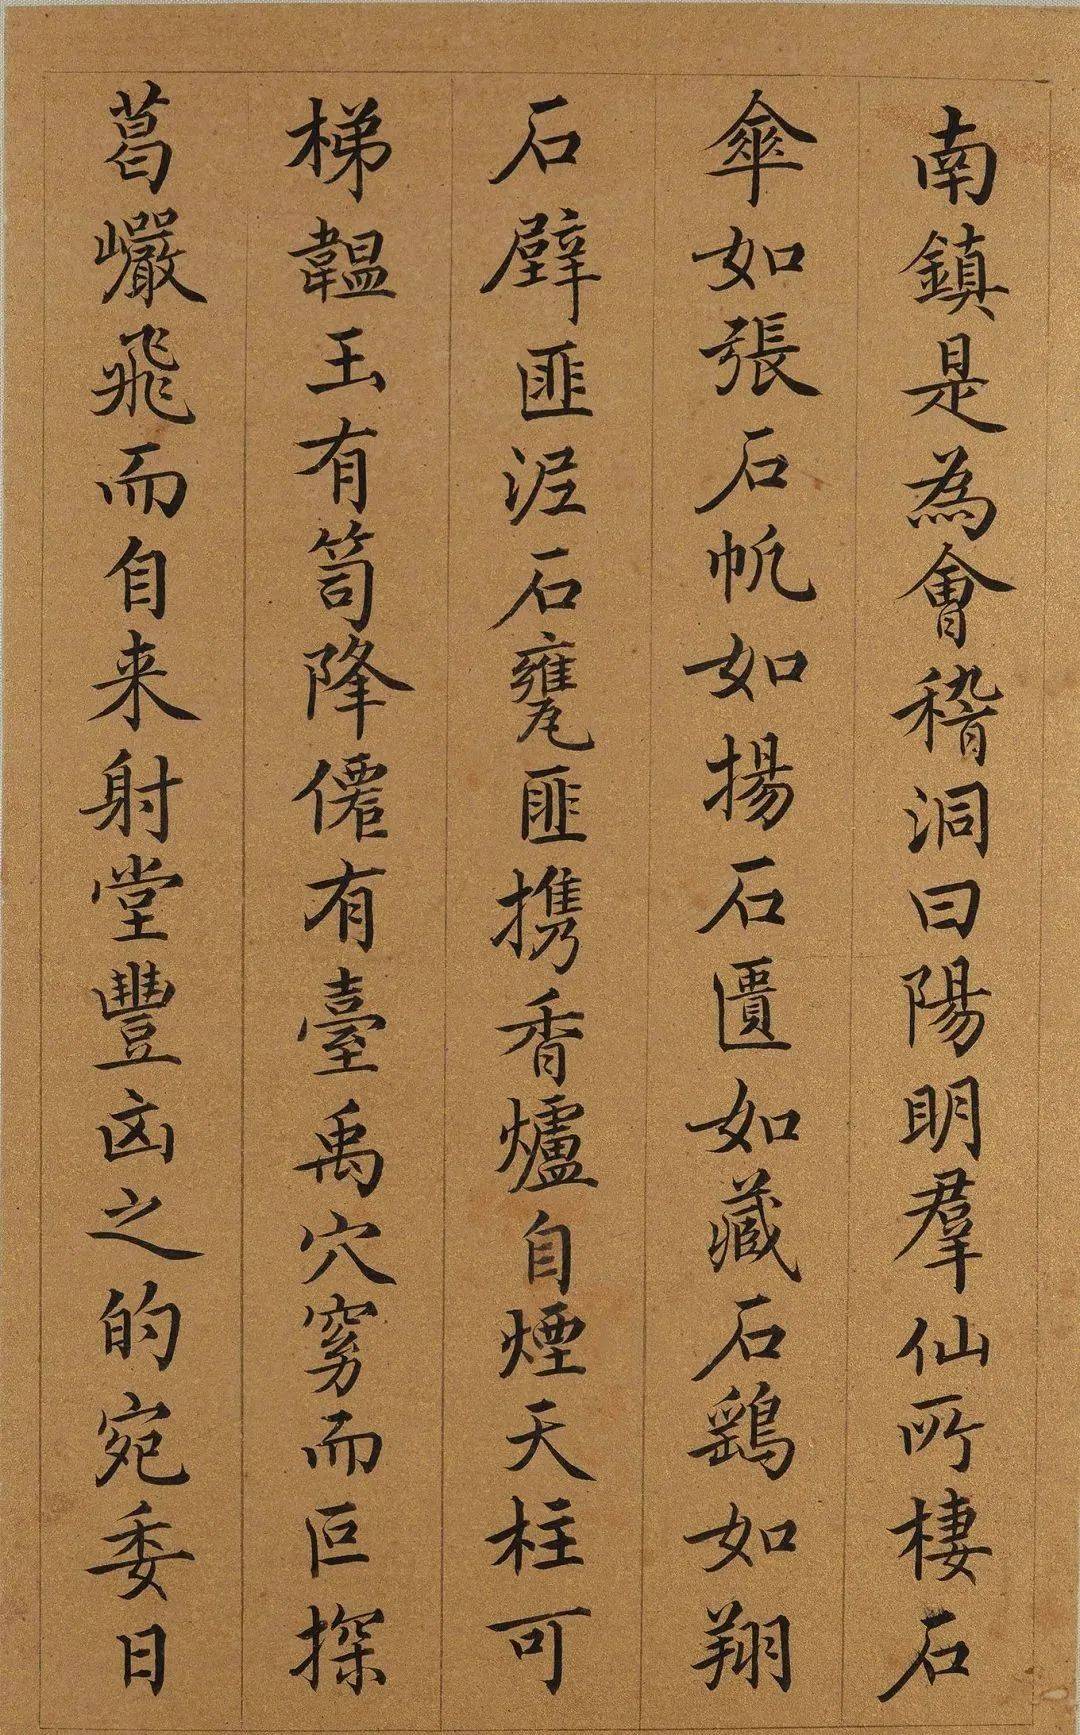 南鎮是為會稽洞曰陽明羣仙所棲石
傘如張石帆如揚石匱如藏石鷂如翔
石壁匪泥石甕匪携香爐自煙天柱可
梯韞玉有笥降僊有臺禹穴窈而叵探
葛巖飛而自来射堂豐凶之的宛委日